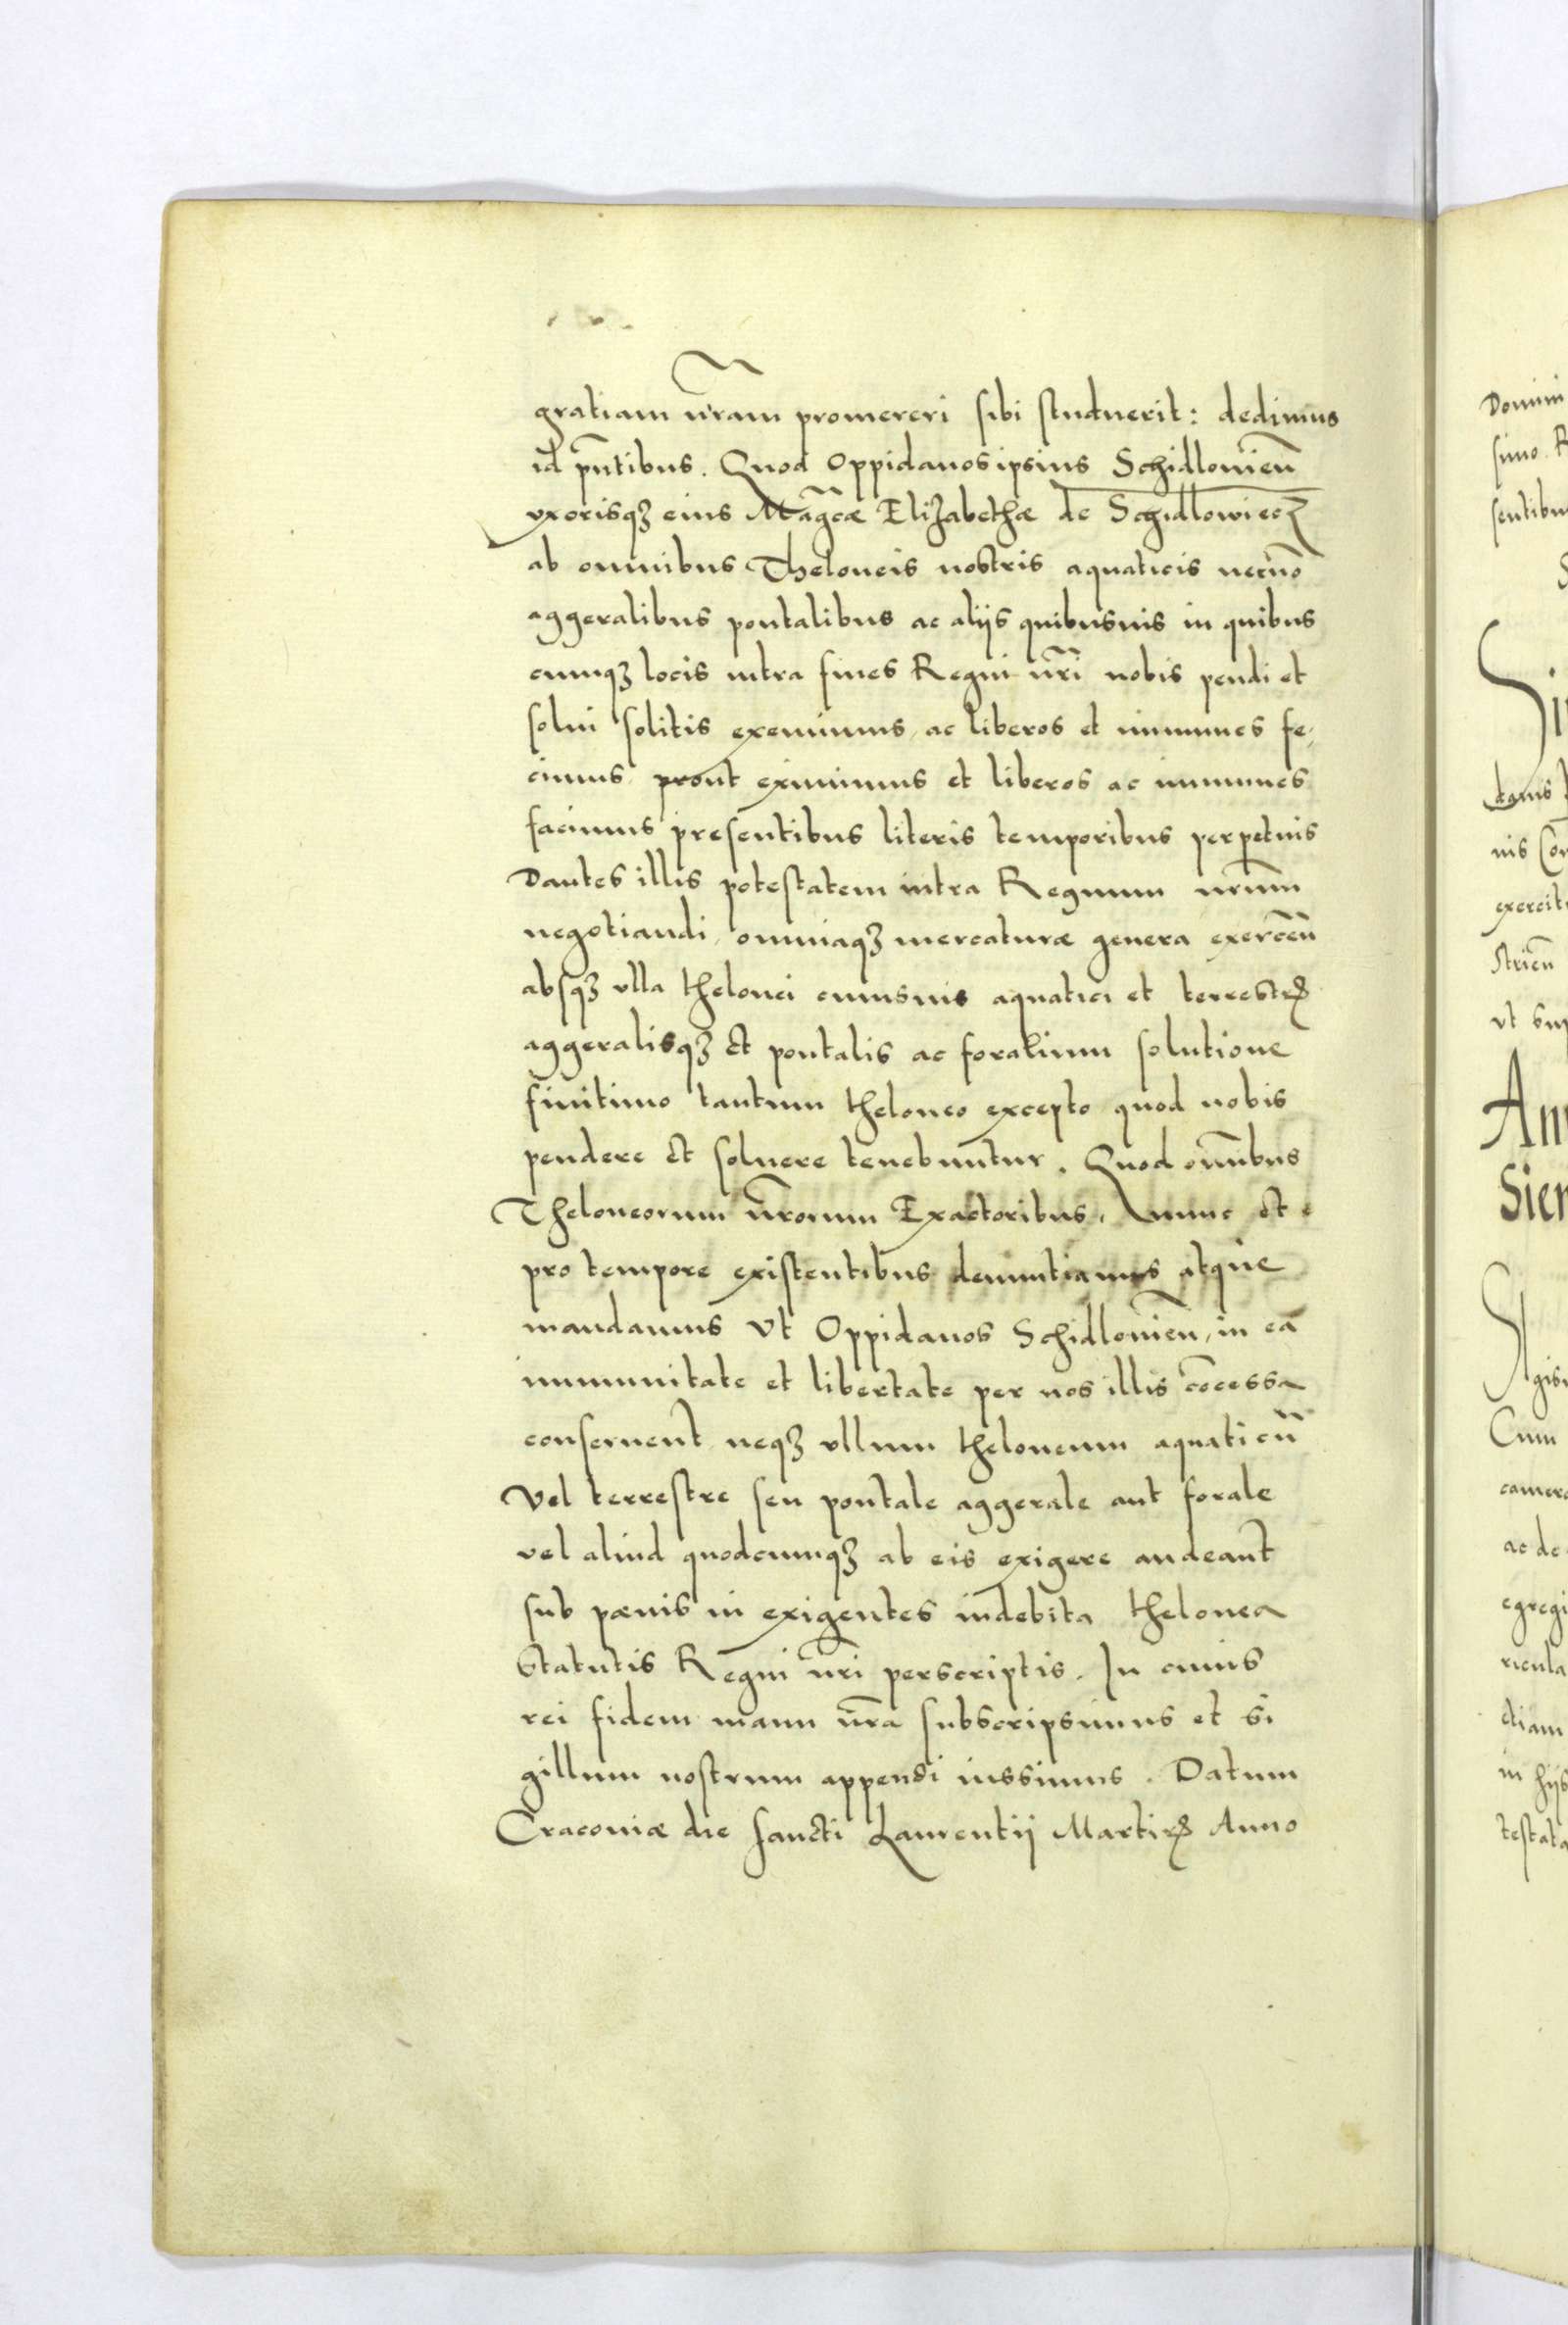 gratiam nr̃am promereri sibi studuerit: dedimus
id pñtibus. Quod Oppidanos ipsius Schidlouieñ
vxorisqȝ eius Mag̃cæ Elizabethæ de Schidlowiecz
ab omnibus Theloneis nostris aquaticis necnõ
aggeralibus pontalibus ac aliis quibusuis in quibus
cunqȝ locis intra fines Regni nr̃i nobis pendi et
solui solitis exemimus, ac liberos et immunes fe,
cimus prout eximimus et liberos ac immunes
facimus presentibus literis temporibus perpetuis
Dantes illis potestatem intra Regnum nr̃um
negotiandi, omniaqȝ mercaturæ genera exerceñ
absqȝ vlla thelonei cuiusuis aquatici et terrestrꝭ
aggeralisqȝ et pontalis ac foralium solutione
finitimo tantum theloneo excepto quod nobis
pendere et soluere tenebuntur. Quod om̃ibus
Theloneorum nr̃orum Exactoribus, nunc et
pro tempore existentibus denuntiamus atque
mandamus vt Oppidanos Schidlouieñ, in ea
immunitate et libertate per nos illis cõcessa
conseruent neqȝ vllum theloneum aquaticũ
vel terrestre seu pontale aggerale aut forale
vel aliud quodcunqȝ ab eis exigere audeant
sub pænis in exigentes indebita thelonea
Statutis Regni nr̃i perscriptis. In cuius
rei fidem manu nr̃a subscripsimus et si
gillum nostrum appendi iussimus. Datum
Cracouiæ die sancti Laurentij Martirꝭ Anno